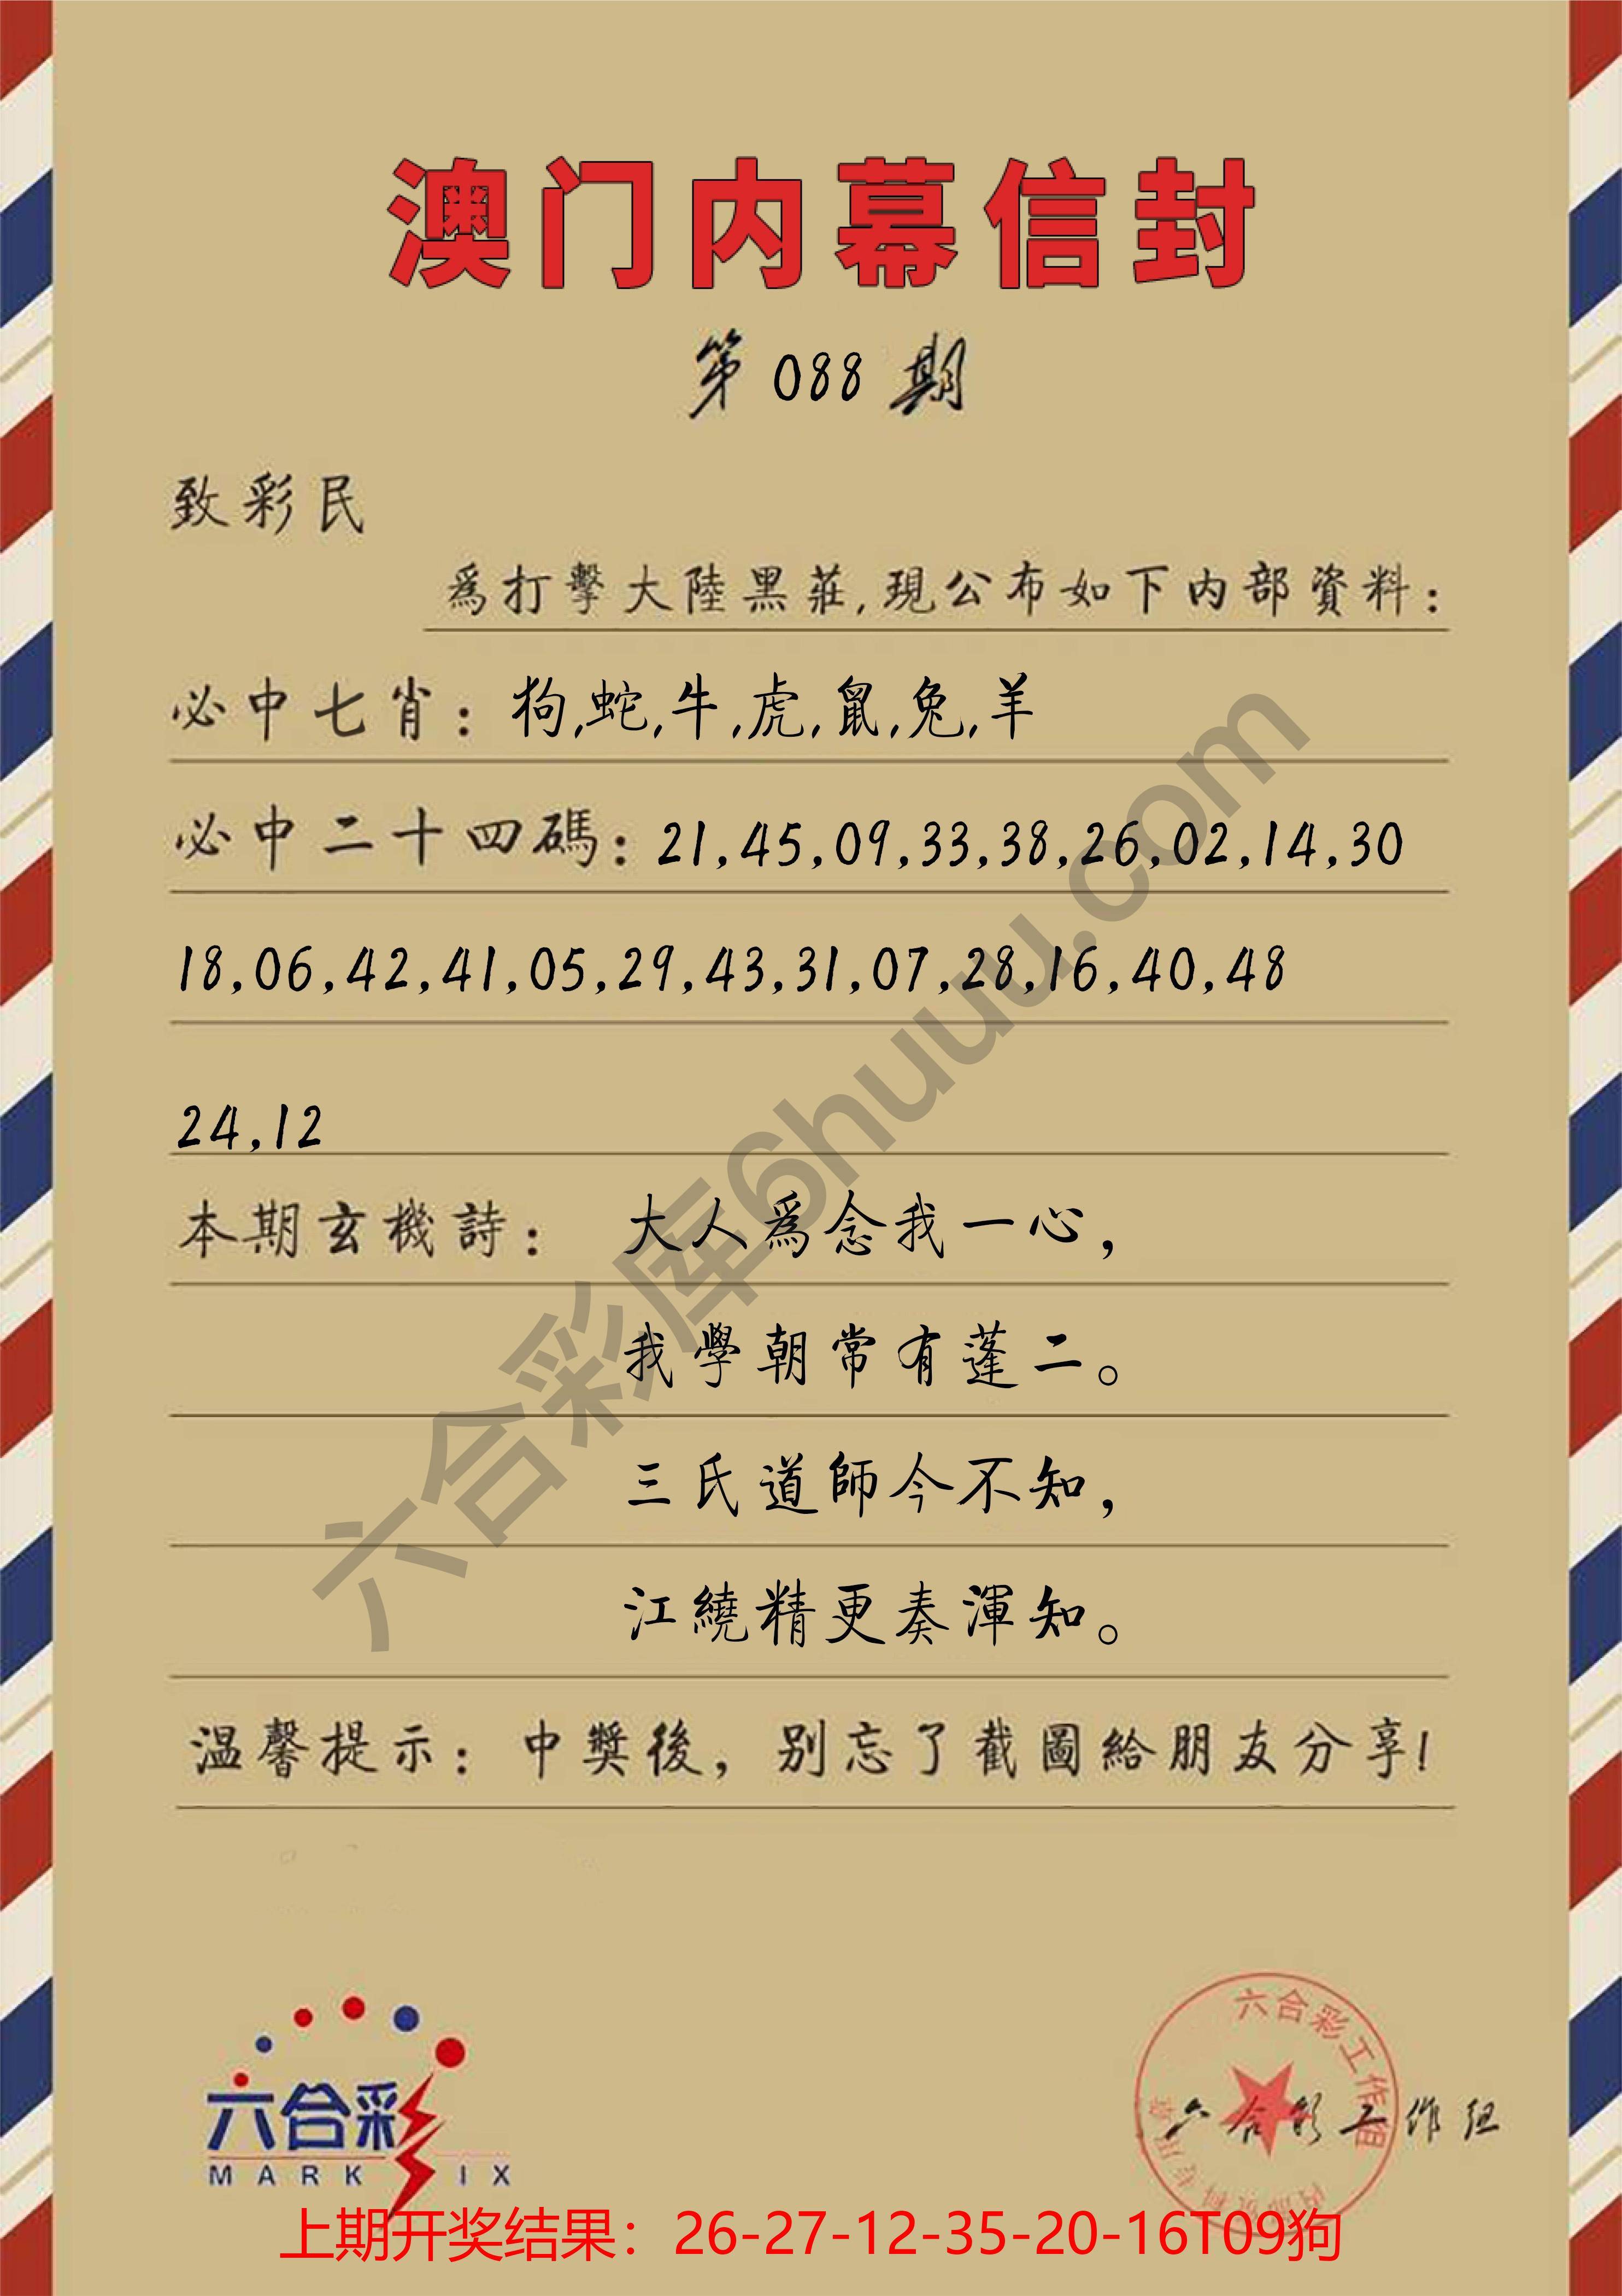 澳门内幕信封
第088期
致彩民
爲打擊大陸黑莊,現公布如下内部資料:
必中七肖:狗,蛇,牛,虎,鼠,兔,羊
必中二十四碼:21,45,09,33,38,26,02,14,30
18,06,42,41,05,29,43,31,07,28,16,40,48
24,12
本期玄機詩: 大人爲念我一心,
我學朝常有蓬二。
三氏道師今不知,
江繞精更奏渾知。
温馨提示:中獎後,别忘了截圖給朋友分享!
六合彩库6huuu.com
六合彩
MARK IX
六合彩工作组
六合彩工作组
上期开奖结果:26-27-12-35-20-16T09狗